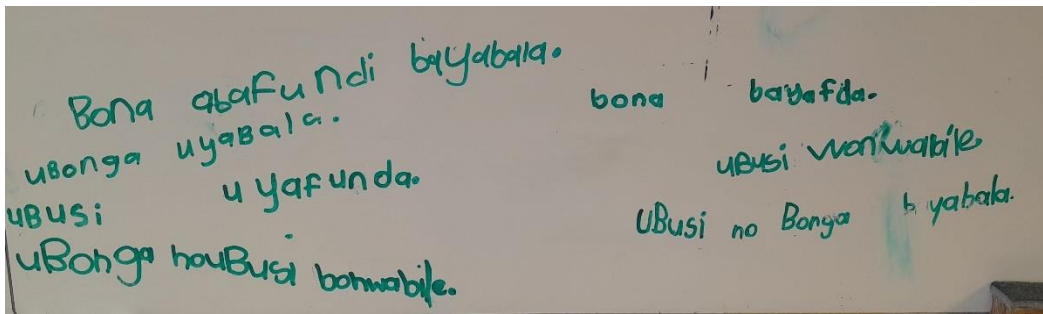 Bona abafundi bayabala.
uBonga uyaBala.
uBUSi u yafunda.
uBonga nouBusi bonwabile.
bona bayafda.
uBusi wonwabile
UBusi no Bonga b yabala.